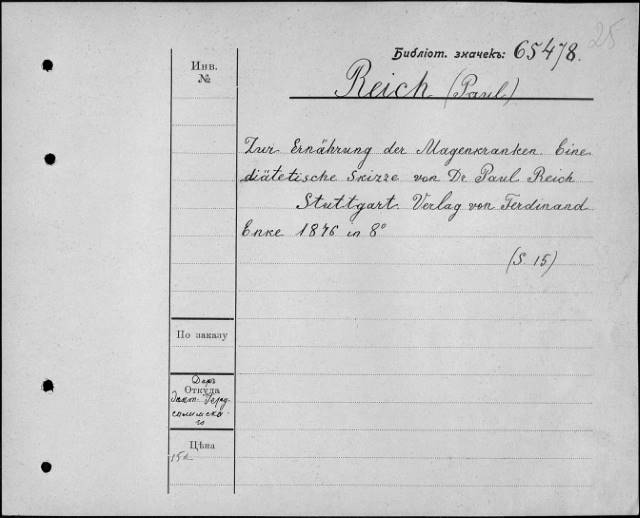 25
Библіот. значекъ: 65478.
Reich (Paul)
Инв.
№
Zur Ernährung der Magenkranken. Eine
diätetische Skizze von Dr Paul Reich
Stuttgart. Verlag von Ferdinand
Enke 1876 in 8°
(S. 15)
По заказу
Даръ
Откуда
докт. Геред-
салимска-
го
Цѣна